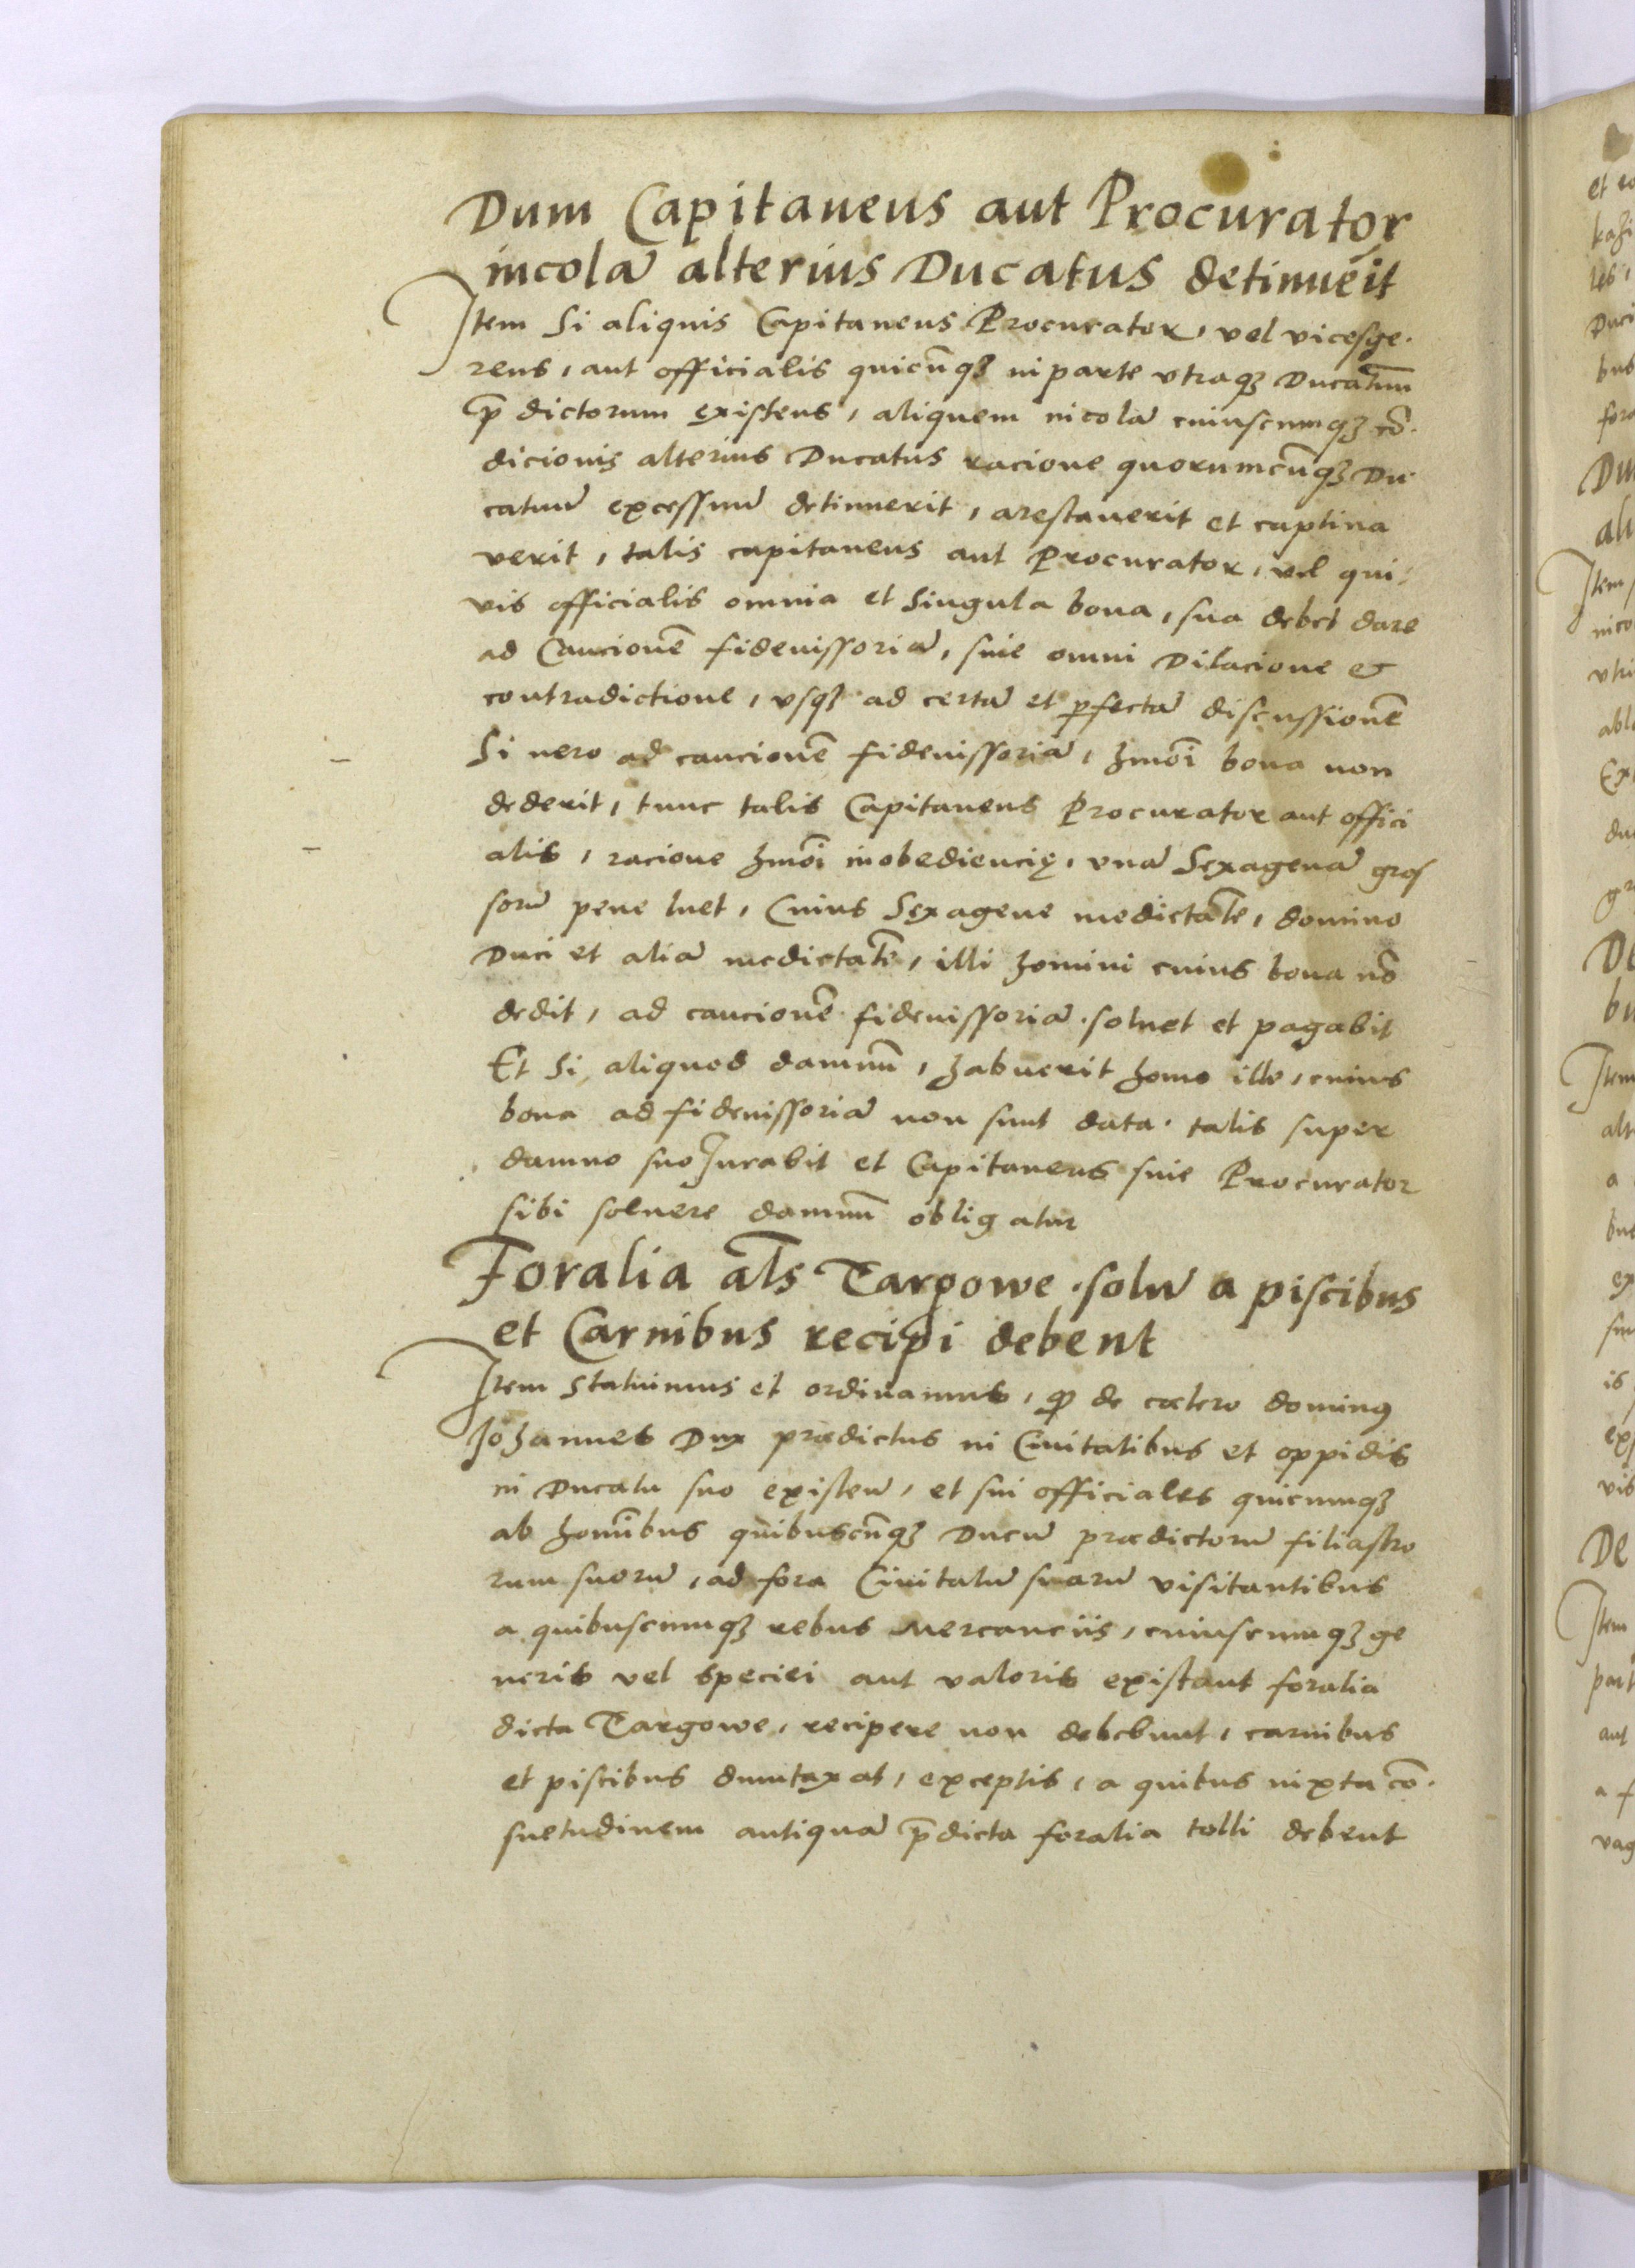 Dum Capitaneus aut Procurator
incolā alterius Ducatus detinueīt
Item Si aliquis Capitaneus Procurator, vel vicesge.
rens, aut officialis quicūqꝫ in parte vtraqꝫ Ducatuū
p̄ dictorum existens, aliquem incolā cuiuscumqꝫ cō.
dicionis alterius Ducatus racione quorumcūqꝫ Du
catuū excessuū detinuerit, arestauerit et captiua
verit, talis capitaneus aut Procurator, vel qui
vis officialis omnia et Singula bona, sua debet dare
ad Caucionē fideiussoriā, sine omni Dilacione &
contradictione, vsqꝫ ad certā et ꝑfectā discussionē
Si uero ad caucionē fideiussoriā, hmōi bona non
dederit, tunc talis Capitaneus Procurator aut offici
alis, racione hmōi inobediencię, vnā Sexagenā gros
sorū pene luet, Cuius Sexagene medietatē, domino
Duci et aliā medietatē, illi homini cuius bona nō
dedit, ad caucionē fideiussoriā. soluet et pagabit
Et Si aliquod damnū, habuerit homo ille, cuius
bona ad fideiussoriā non sunt data. talis super
damno suo Jurabit et Capitaneus siue Procurator
sibi soluere damnū obligatur
Foralia al̄s Targowe. solū a piscibus
et Carnibus recipi debent
Item Statuimus et ordinamus, ꝙ de cætero dominꝰ
Johannes Dux prædictus in Ciuitatibus et oppidis
in Ducatu suo existeñ, et sui officiales quicumqꝫ
ab homībus quibuscūqꝫ Ducū prædictorū filiastro
rum suorū, ad fora Ciuitatū suarū visitantibus
a quibuscumqꝫ rebus Mercanciis, cuiuscumqꝫ ge
neris vel speciei aut valoris existant foralia
dicta Targowe, recipere non debebunt, carnibus
et piscibus dumtaxat, exceptis, a quibus iuxta cō.
suetudinem antiquā p̄dicta foralia tolli debent